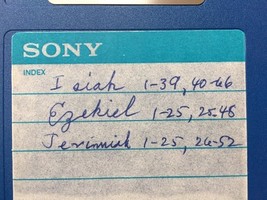 SONY
INDEX
Isiah 1-39, 40-66
Ezekiel 1-25, 25-48
Jerimiah 1-25, 26-52